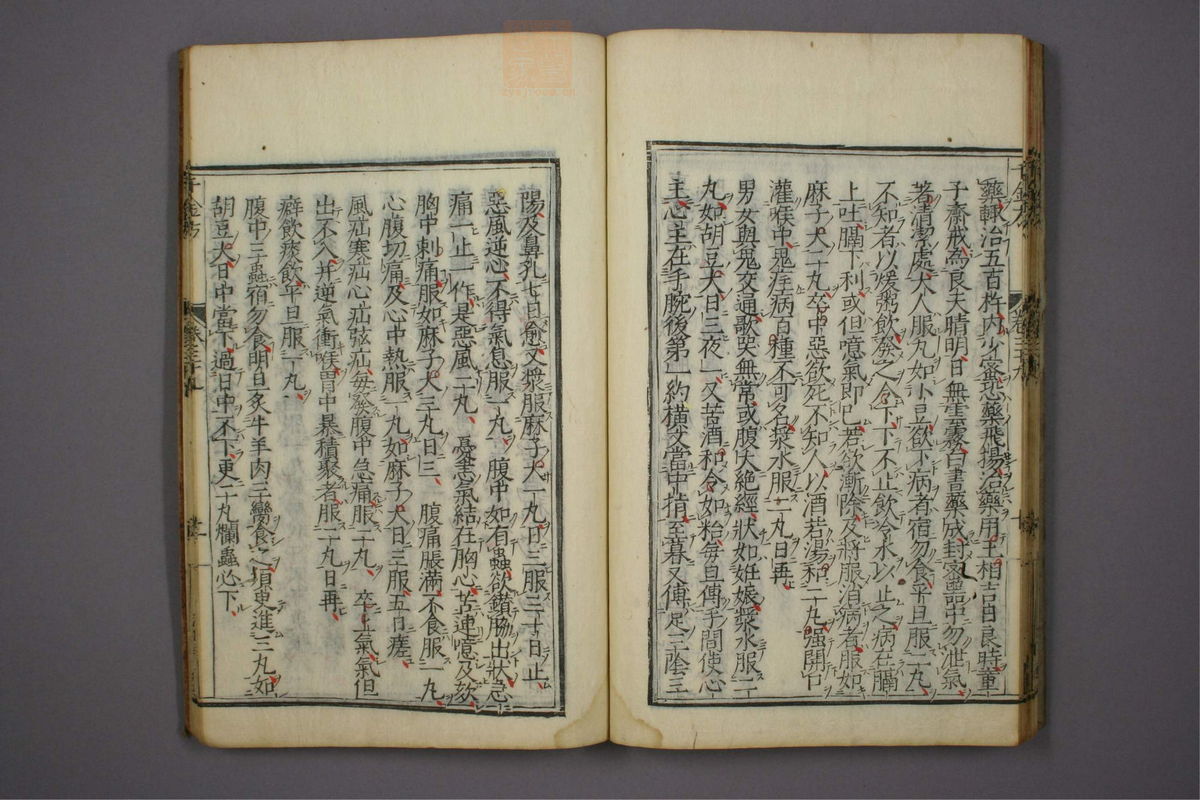 藥輒治五百杵內少蜜恐藥飛揚治藥用王相吉日良時童
子齋戒為良天晴明日無雲霧白晝藥成封密器中勿泄氣
著清潔處大人服丸如小豆欲下病者宿勿食平旦服二丸
不知者以煖粥飲發之令下下不止飲冷水以止之病在膈
上吐膈下利或但噫氣即已若欲漸除及將服消病者服如
麻子大二丸卒中惡欲死不知人以酒若湯和二丸强開口
灌喉中鬼疰病百種不可名漿水服二丸日再
男女與鬼交通歌哭無常或腹大絕經狀如妊娠漿水服二
丸如胡豆大日三夜一又苦酒和令如粘每旦傅手間使心
主心主在手腕後第一約橫文當中指至暮又傅足三陰三
陽及鼻孔七日愈又漿服麻子大一丸日三服三十日止
惡風逆心不得氣息服一丸 腹中如有蟲欲鑽脇出狀急
痛一止一作是惡風二丸 憂恚氣結在胸心苦連噫及欬
胸中刺痛服如麻子大三丸日三 腹痛脹滿不食服一丸
心腹切痛及心中熱服一丸如麻子大日三服五日瘥
風疝寒疝心疝弦疝每發腹中急痛服二丸 卒上氣氣但
出不入并逆氣衝喉胷中暴積聚者服二丸日再
癖飲痰飲平旦服二丸
腹中三蟲宿勿食明旦炙牛羊肉三臠食之須臾進三丸如
胡豆大日中當下過日中不下更二丸爛蟲必下